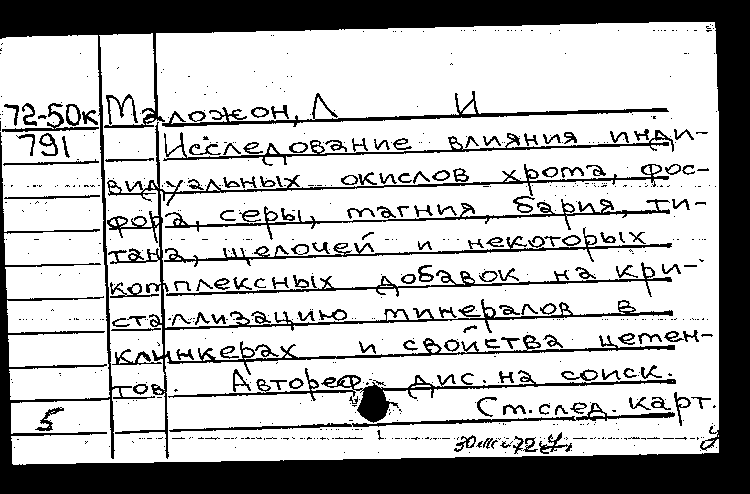 72-50к Маложон, Л И
791 Исследование влияния инди-
видуальных окислов хрома, фос-
фора, серы, магния, бария, ти-
тана, щелочей и некоторых
комплексных добавок на кри-
сталлизацию минералов в
клинкерах и свойства цемен-
тов. Автореф. дис. на соиск.
5 См. след. карт.